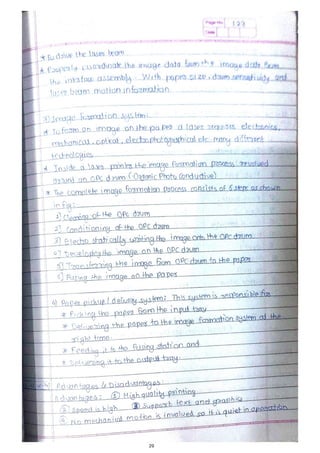 Page No. 127
Date
* To drive the laser beam
* Properly coordinate the image data from the image data from
the interface assembly. With paper size, drum sensitivity and
laser beam motion information.
3) Image formation system:
* To form an image on the paper a laser requires electronics,
mechanical, optical, electrophotographical etc many different
technologies
* Inside a laser printer the image formation process revolved
around an OPC drum (Organic Photo Conductive)
* The complete image formation process consists of 6 steps as shown
in fig:
1) Cleaning of the OPC drum
2) Conditioning of the OPC drum
3) Electro statically writing the image onto the OPC drum.
4) Developing the image on the OPC drum
5) Transferring the image from OPC drum to the paper
6) Fusing the image on the paper
4) Paper pickup / delivery system: This system is responsible for
* Picking the paper from the input tray
* Delivering the paper to the image formation system at the
right time
* Feeding it to the fusing station and
* Delivering it to the output tray.
Advantages & Disadvantages:
Advantages: ① High quality printing
② Speed is high ③ Support text and graphics
④ No mechanical motion is involved so it is quiet in operation
29